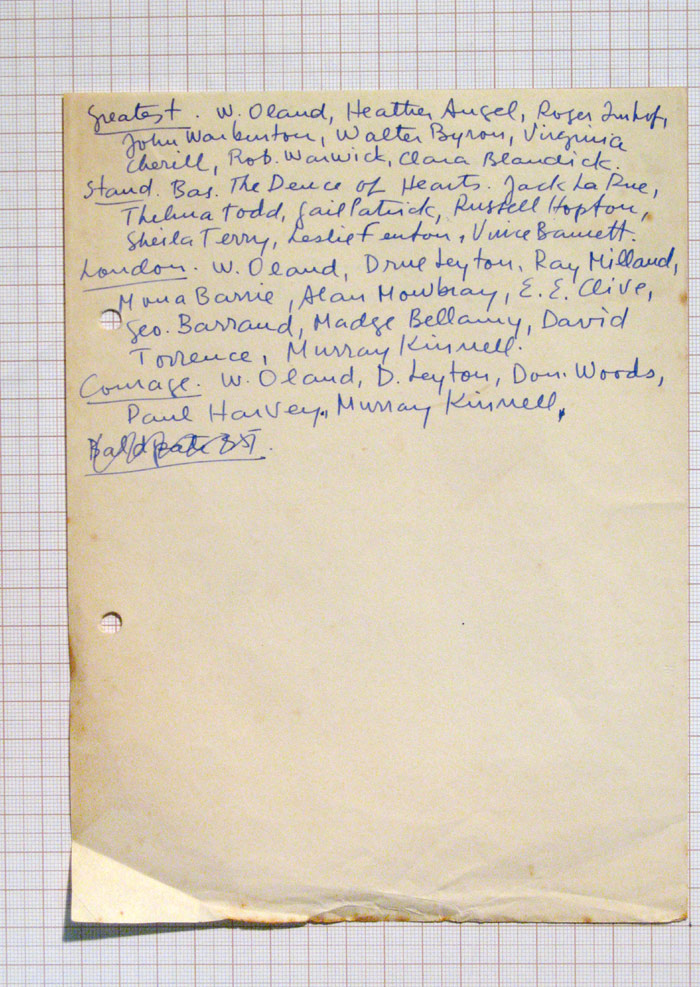 Greatest. W. Oland, Heather Angel, Roger Imhof,
John Warburton, Walter Byron, Virginia
Cherill, Rob. Warwick, Clara Blandick.
Stand. Bas. The Deuce of Hearts. Jack La Rue,
Thelma Todd, Gail Patrick, Russell Hopton,
Sheila Terry, Leslie Fenton, Vince Barnett.
London. W. Oland, Drue Leyton, Ray Milland,
Mona Barrie, Alan Mowbray, E. E. Clive,
Geo. Barraud, Madge Bellamy, David
Torrence, Murray Kinnell.
Courage. W. Oland, D. Leyton, Don. Woods,
Paul Harvey, Murray Kinnell,